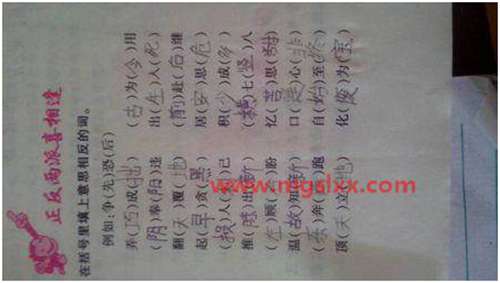 正反两派喜相逢
在括号里填上意思相反的词。
例如:争(先)恐(后)
弄(巧)成(拙) (古)为(今)用
(阴)奉(阳)违 出(生)入(死)
翻(天)覆(地) (前)赴(后)继
起(早)贪(黑) 居(安)思(危)
(损)人( )己 积(少)成(多)
推(陈)出(新) (横)七(竖)八
(左)顾( )盼 忆(苦)思(甜)
温(故)知(新) 口(是)心(非)
(东)奔( )跑 自(始)至(终)
顶(天)立(地) 化(废)为(宝)
www.mgslxx.com